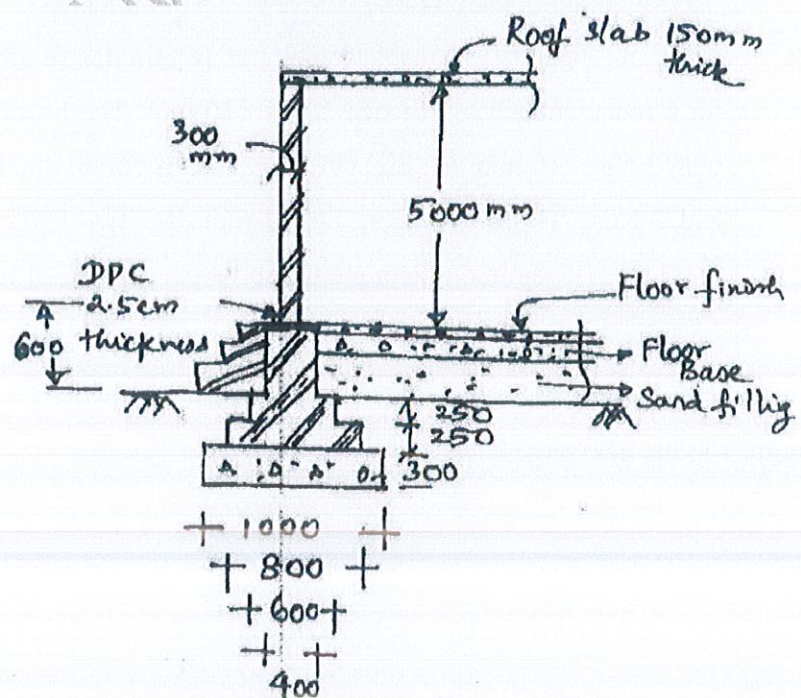 Roof slab 150mm
thick
300
mm
5000mm
DPC
2.5cm
thickness
600
Floor finish
Floor
Base
Sand fillig
250
250
300
1000
800
600
400